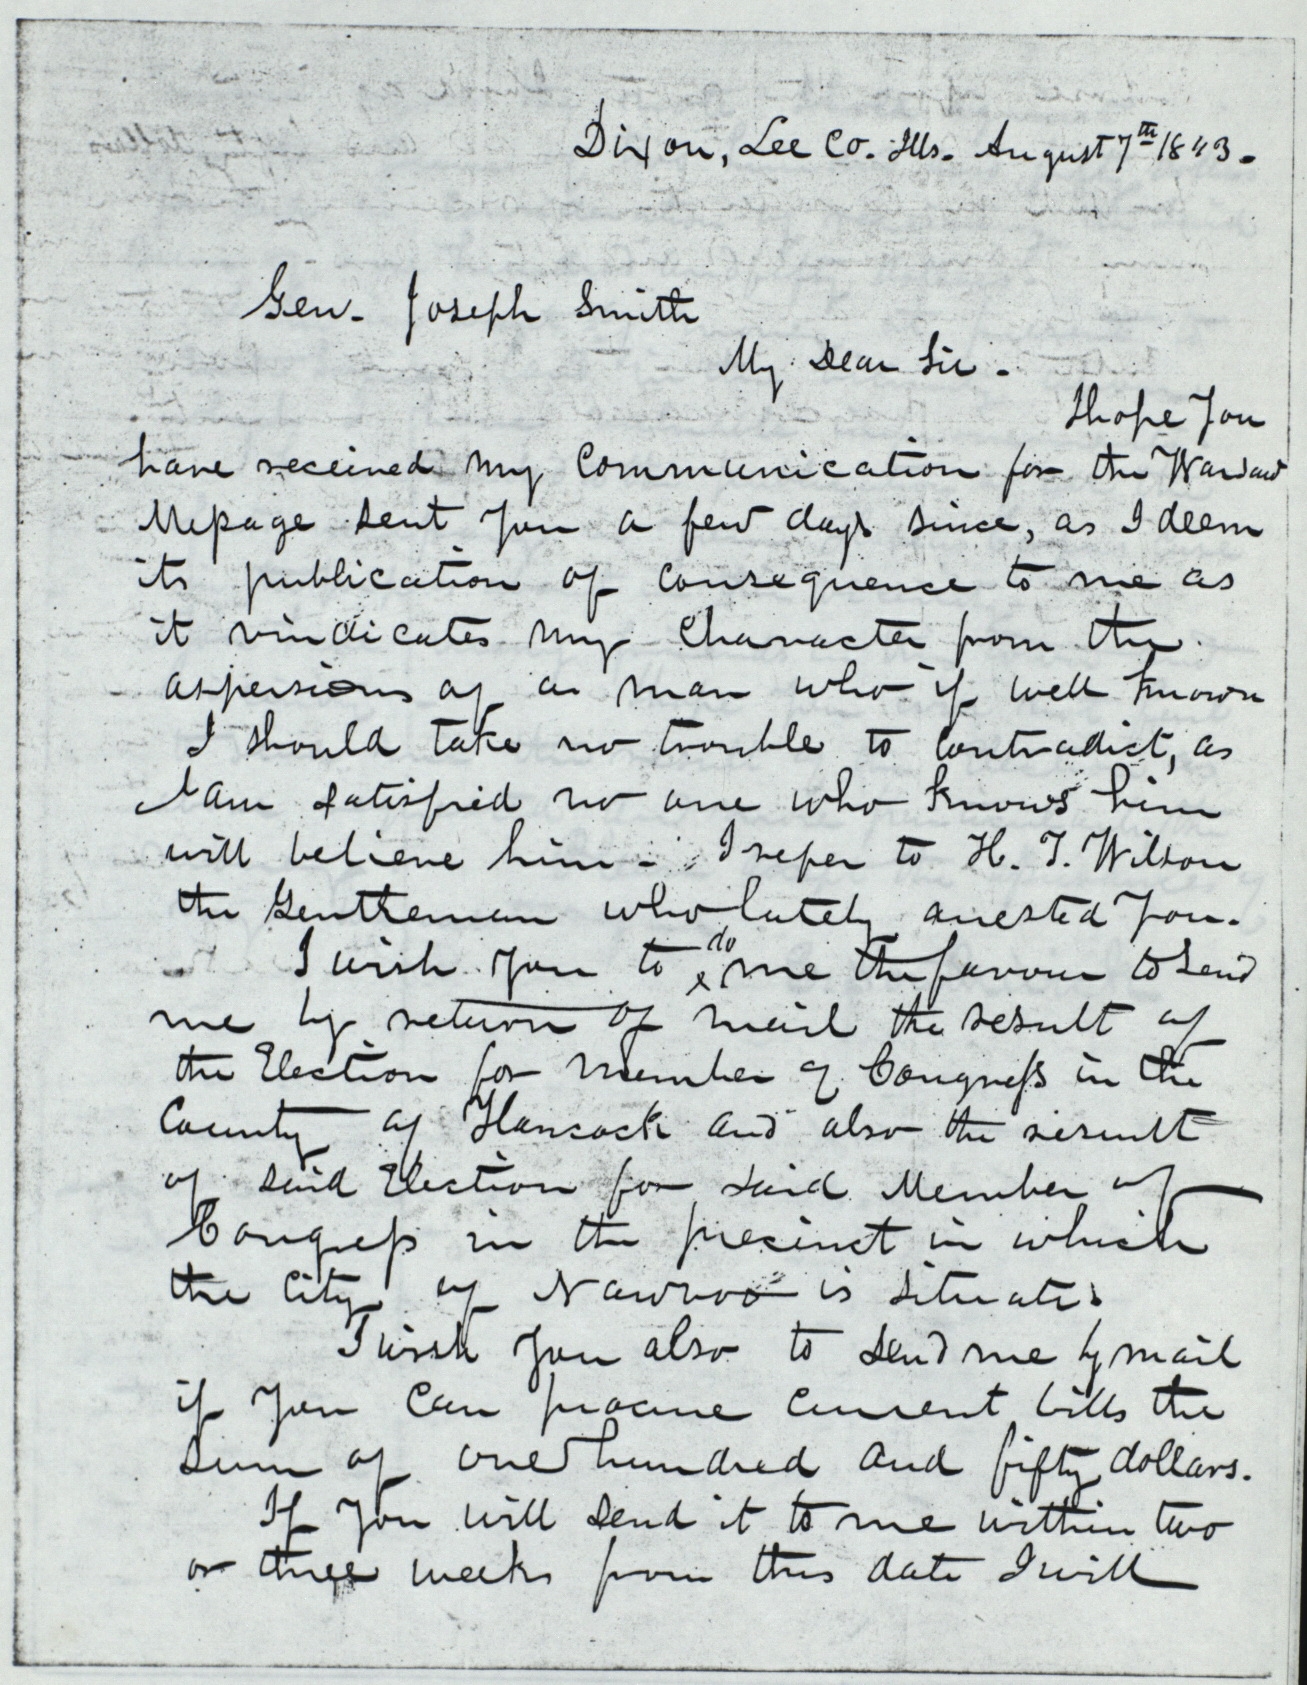 Dixon, Lee Co. Ills. August 7th 1843.
Gen. Joseph Smith
My Dear Sir.
I hope you
have received my communication for the Warsaw
Message sent you a few days since, as I deem
its publication of consequence to me as
it vindicates my character from the
aspersions of a man who if well known
I should take no trouble to contradict, as
I am satisfied no one who knows him
will believe him - I refer to H. T. Wilson
the Gentleman who lately arrested you.
I wish you to do me the favour to send
me by return of mail the result of
the Election for member of Congress in the
County of Hancock and also the result
of said Election for said Member of
Congress in the precinct in which
the City of Nawvoo is situate.
I wish you also to send me by mail
if you can procure current bills the
sum of one hundred and fifty dollars.
If you will send it to me within two
or three weeks from this date I will